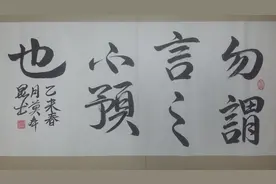 勿謂
言之
不預
也
乙未春
月